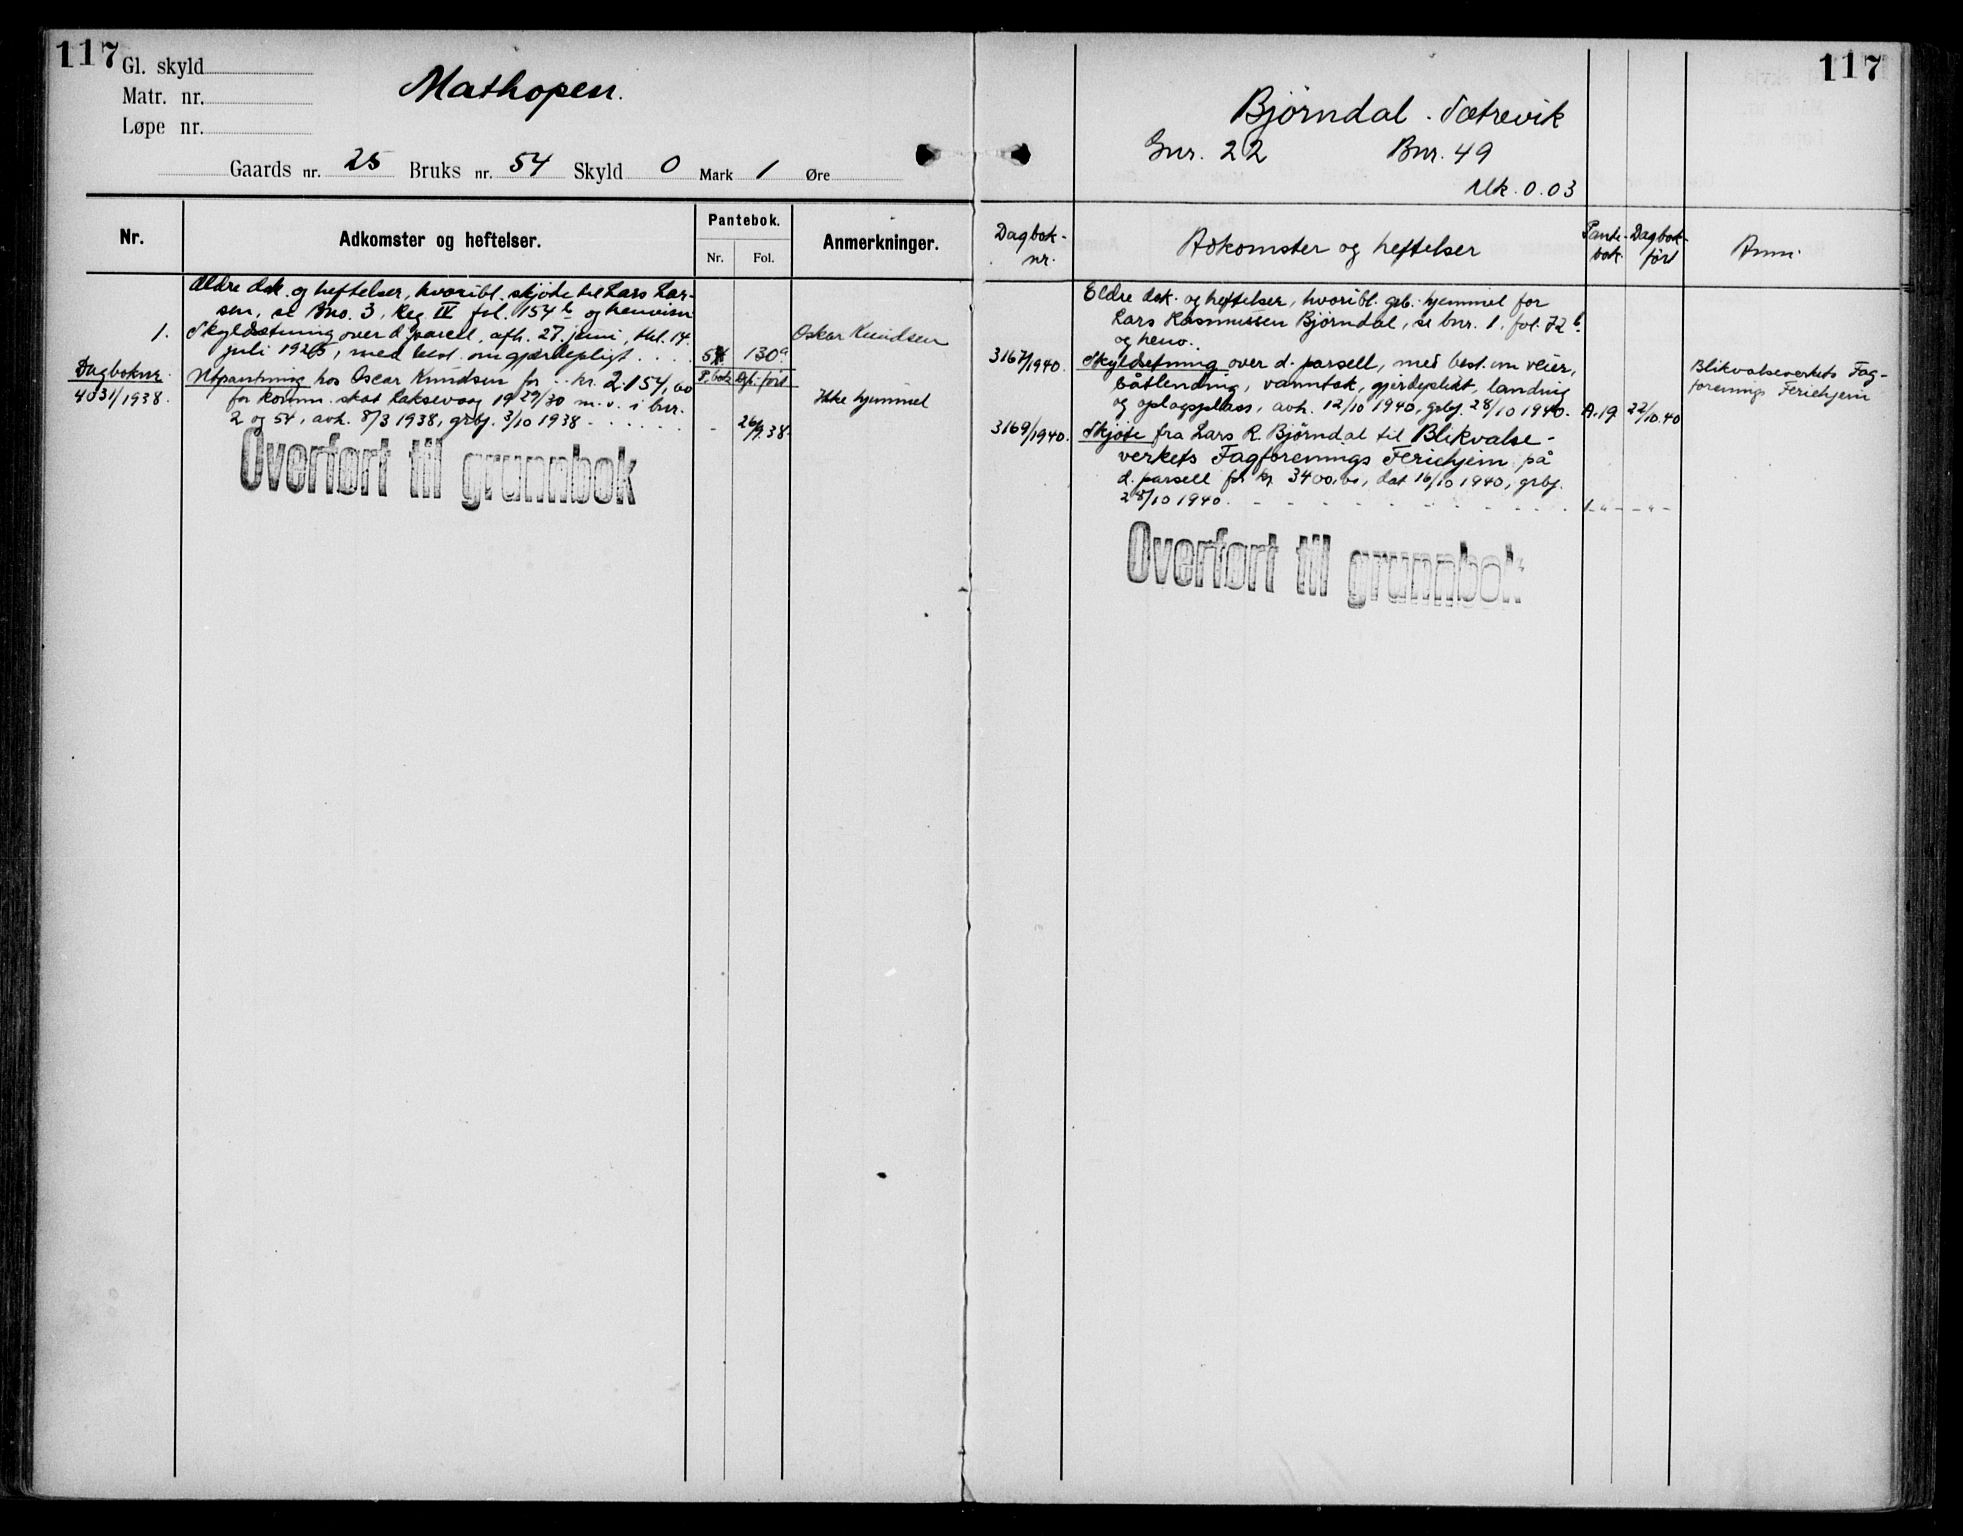 117
Gl. skyld
Matr. nr.
Løpe nr.
Mathopen.
Gaards nr. 25 Bruks nr. 54 Skyld 0 Mark 1 Øre
Nr.
Adkomster og heftelser.
Pantebok.
Nr. Fol.
Anmerkninger.
Ældre dok. og heftelser, hvoribl. skjøte til Lars Lar-
sen, se Bno. 3, Reg. IV fol. 154 b og henvisn
1. Skyldsetning over d. parcel, afh. 27. juni, tkl. 14. Oskar Knudsen
juli 1925, med best. om gjerdepligt . . . . 54 130a
Dagboknr. P.bok Db. ført
4031/1938. Utpantning hos Oscar Knudsen for kr. 2.154,00 Ikke hjemmel
for komm. skat Laksevaag 1929/30 m.v. i bnr.
2 og 54, avh. 8/3 1938, grbf. 3/10 1938 - - - - - - - 26/9 38-
Overført til grunnbok
117
Bjørndal - Sætrevik
Gnr. 22 Bnr. 49
Mk. 0.03
Dagbok-
nr.
Adkomster og heftelser
Pante-
bok.
Dagbok-
ført
Anm.
Eldre dok. og heftelser, hvoribl. geb. hjemmel for
Lars Rasmussen Bjørndal, se bnr. 1, fol. 72 b
og henv.
3167/1940. Skyldsetning over d. parsell, med best. om veier, Blikvalseverkets Fag-
båtlending, vanntak, gjerdeplikt, landing forenings Feriehjem
og oplagsplass, avh. 12/10 1940, grbf. 28/10 1940. A.19 22/10.40
3169/1940. Skjøte fra Lars R. Bjørndal til Blikvalse-
verkets Fagforenings Feriehjem på
d. parsell for kr. 3400,00, dat 16/10 1940, grbf.
28/10 1940. - - - - - - - - - - - - -"- - -"-
Overført til grunnbok